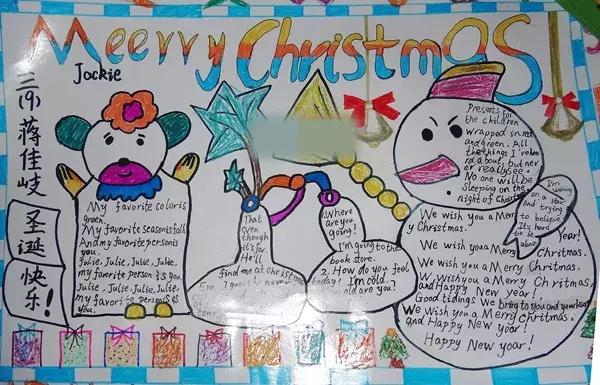 Meerry Christmas
Jackie
三(9)蒋佳岐
圣诞
快乐!
My favorite color is
green.
My favorite season is fall.
And my favorite person is
you.
Julie, Julie, Julie, Julie,
my favorite person is you.
Julie, Julie, Julie, Julie,
my favorite person is
you.
That
even
though
it's far
He'll
find me at Christmas
Eve. I guess he never
Where
are you
going?
I'm going to the
book store.
2. How do you feel
today? I'm cold.
old are you?
Presents for
the children
wrapped in red
and green. All
the things I've hea
rd about, but nev
er really see.
No one will be
sleeping on the
night of Christ
I'm wishing
on a star
and trying
to believe
It's hard to
be alone
We wish you a Merr
y Christmas.
Year!
We wish you a Merry Christmas.
We wish you a Merry Chritmas.
We wish you a Merry Chritmas,
and Happy New year!
Good tidings We bring to you and your
We wish you a Merry Christmas.
and Happy New year!
Happy New year!